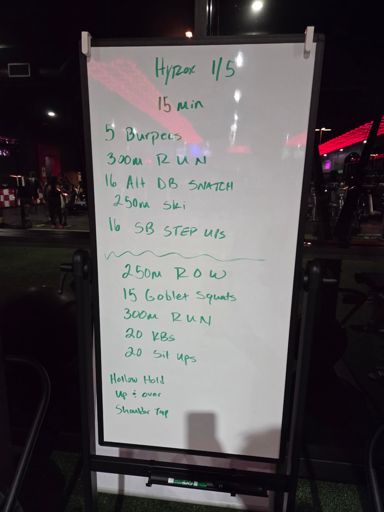 Hyrox 1/5
15 min
5 Burpees
300m RUN
16 Alt DB SNATCH
250m Ski
16 SB STEP UPS
250m ROW
15 Goblet Squats
300m RUN
20 KBs
20 Sit ups
Hollow Hold
Up & over
Shoulder Tap